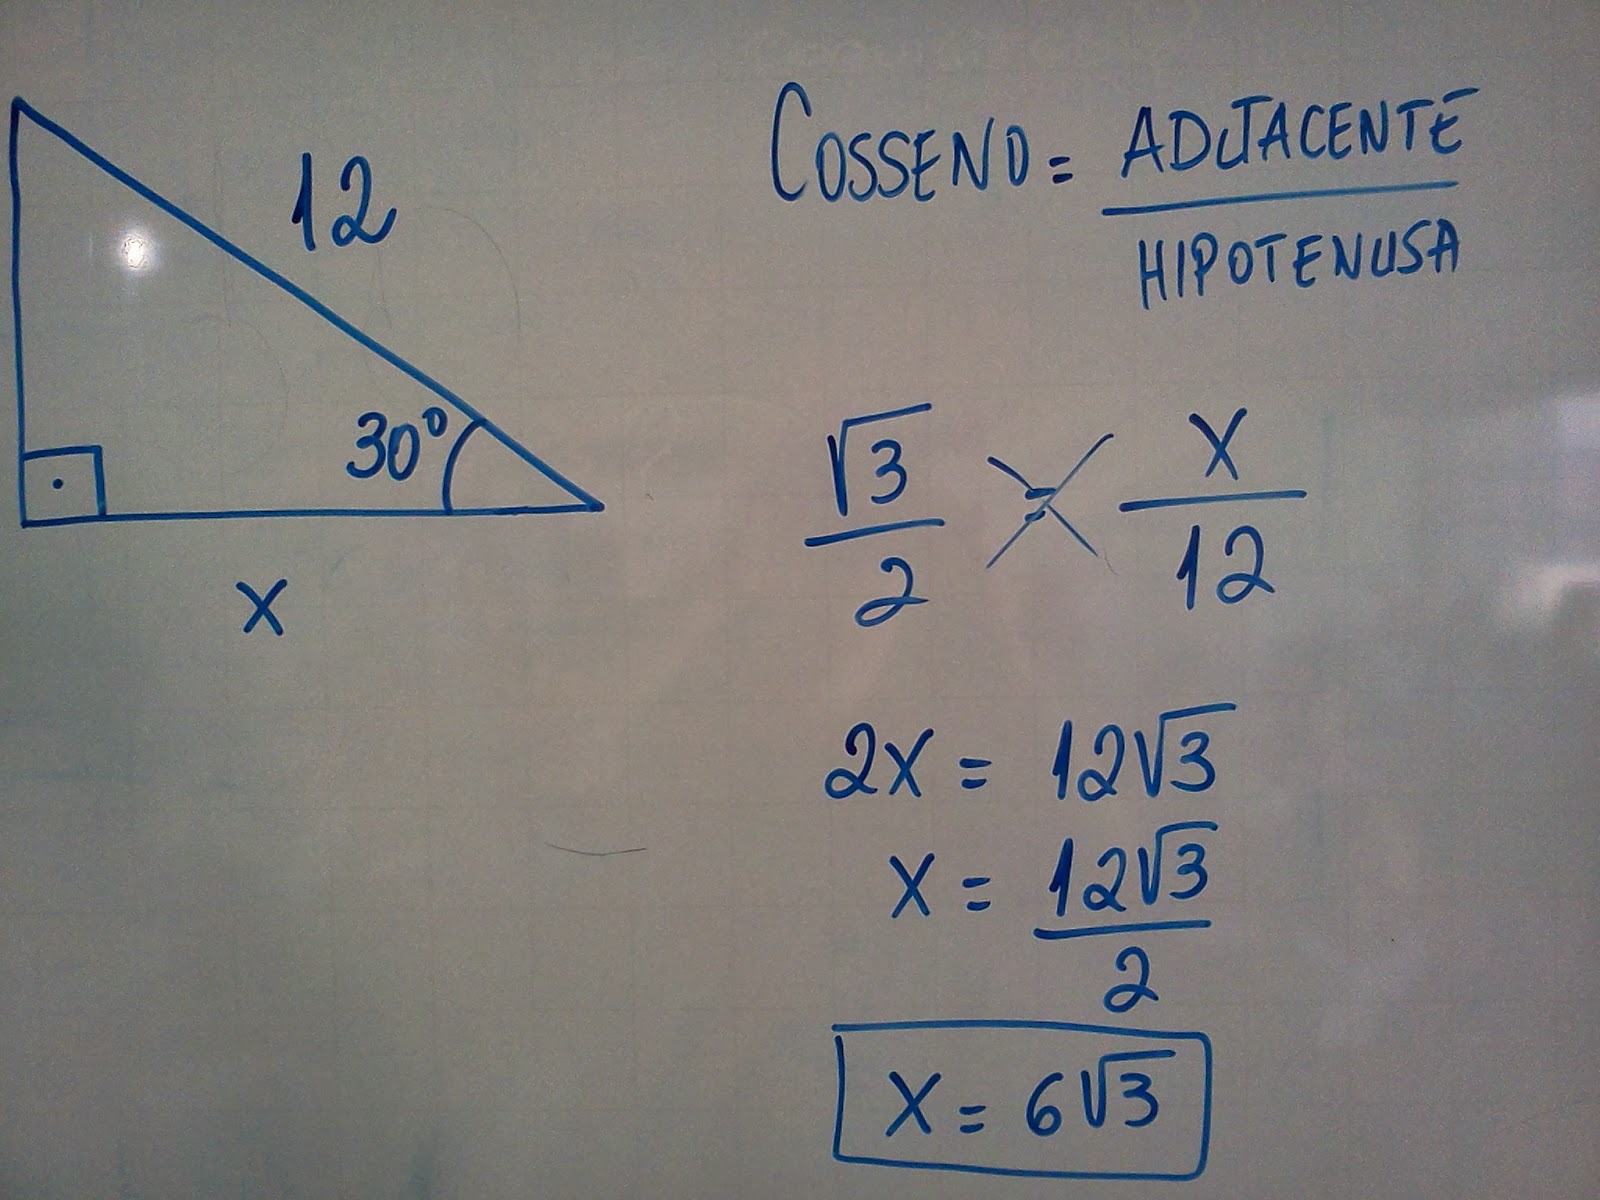 12
30°
x
COSSENO = ADJACENTE / HIPOTENUSA
√3/2 = x/12
2x = 12√3
x = 12√3/2
x = 6√3